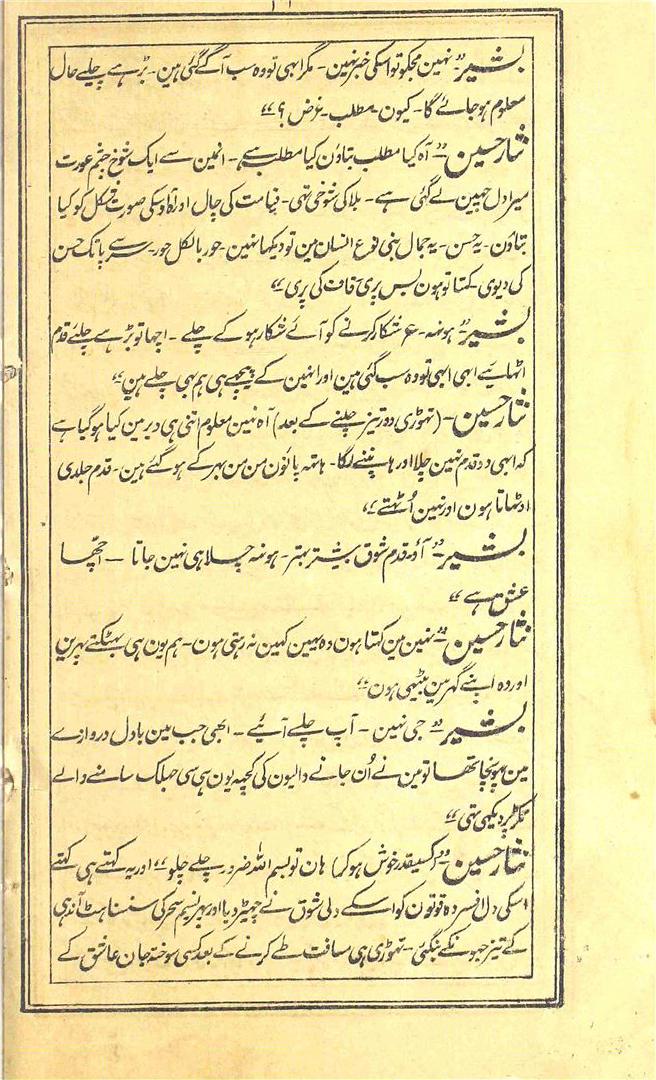 بشیر۔ ”نہین مجکو تو اسکی خبر نہین۔ مگر ابہی تو وہ سب آگے گئی ہین۔ بڑہے چلیے حال
معلوم ہو جائے گا۔ کیون۔ مطلب۔ غرض؟“
نثار حسین۔ ”آہ کیا مطلب بتاؤن کیا مطلب ہے۔ انہین سے ایک شوخ چشم عورت
میرا دل چہین لے گئی ہے۔ بلا کی شوخی تہی۔ قیامت کی چال اور اوسکی صورت شکل کو کیا
بتاؤن۔ یہ حسن۔ یہ جمال بنی نوع انسان مین تو دیکہا نہین۔ حور بالکل حور۔ سر سے پا تک حسن
کی دیوی۔ کہتا تو ہون بس پری قاف کی پری“
بشیر۔ ”ہونہہ۔ ع شکار کرنے کو آئے شکار ہو کے چلے۔ اچہا تو بڑہے چلیے قدم
اٹہایئے ابہی ابہی تو وہ سب گئی ہین اور انہین کے پیچہے ہی ہم بہی چلے ہین“
نثار حسین۔ (تہوڑی دور تیز چلنے کے بعد) آہ نہین معلوم اتنی ہی دیر مین کیا ہو گیا ہے
کہ ابہی دو قدم نہین چلا اور ہانپنے لگا۔ ہاتہہ پانؤن من من بہر کے ہو گئے ہین۔ قدم جلدی
اوٹہاتا ہون اور نہین اُٹہتے“
بشیر۔ ”آؤ۔ قدم شوق بیشتر بہتر۔ ہونہہ چلا ہی نہین جاتا ۔ اچّہا
عشق ہے“
نثار حسین۔ ”نہین مین کہتا ہون وہ یہین کہین نہ رہتی ہون۔ ہم یون ہی بہٹکتے پہرین
اور وہ اپنے گہر مین بیٹہی ہون“
بشیر۔ ”جی نہین ۔ آپ چلے آئیے ۔ ابھی جب مین بادل دروازے
مین پہونچا تہا تو مین نے اُن جانے والیون کی کچہہ یون ہی سی جہلک سامنے والے
نکڑ پر دیکہی تہی“
نثار حسین۔ ”(کسیقدر خوش ہو کر) ہان تو بسم اللہ ضرور چلے چلو“ اور یہ کہتے ہی کہتے
اسکی دل افسردہ قوتون کو اسکے دلی شوق نے چہیڑ دیا اور پہر نسیم سحر کی سنسناہٹ آندہی
کے تیز جہونکے بنگئی۔ تہوڑی ہی مسافت طے کرنے کے بعد کسی سوختہ جان عاشق کے